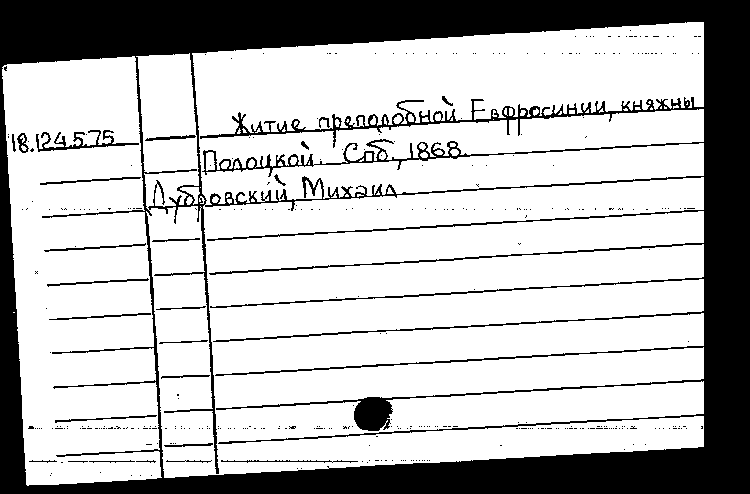 18.124.5.75
Житие преподобной Евфросинии, княжны
Полоцкой. Спб., 1868.
Дубровский, Михаил.